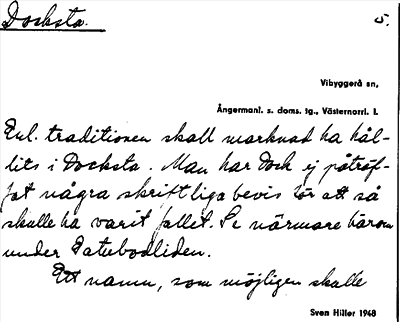 Docksta. 5.
Vibyggerå sn,
Ångermanl. s. doms. tg., Västernorrl. l.
Enl. traditionen skall marknad ha hål-
lits i Docksta. Man har dock ej påträf-
fat några skriftliga bevis för att så
skulle ha varit fallet. Se närmare härom
under Satubodliden.
Ett namn, som möjligen skulle
Sven Hiller 1948